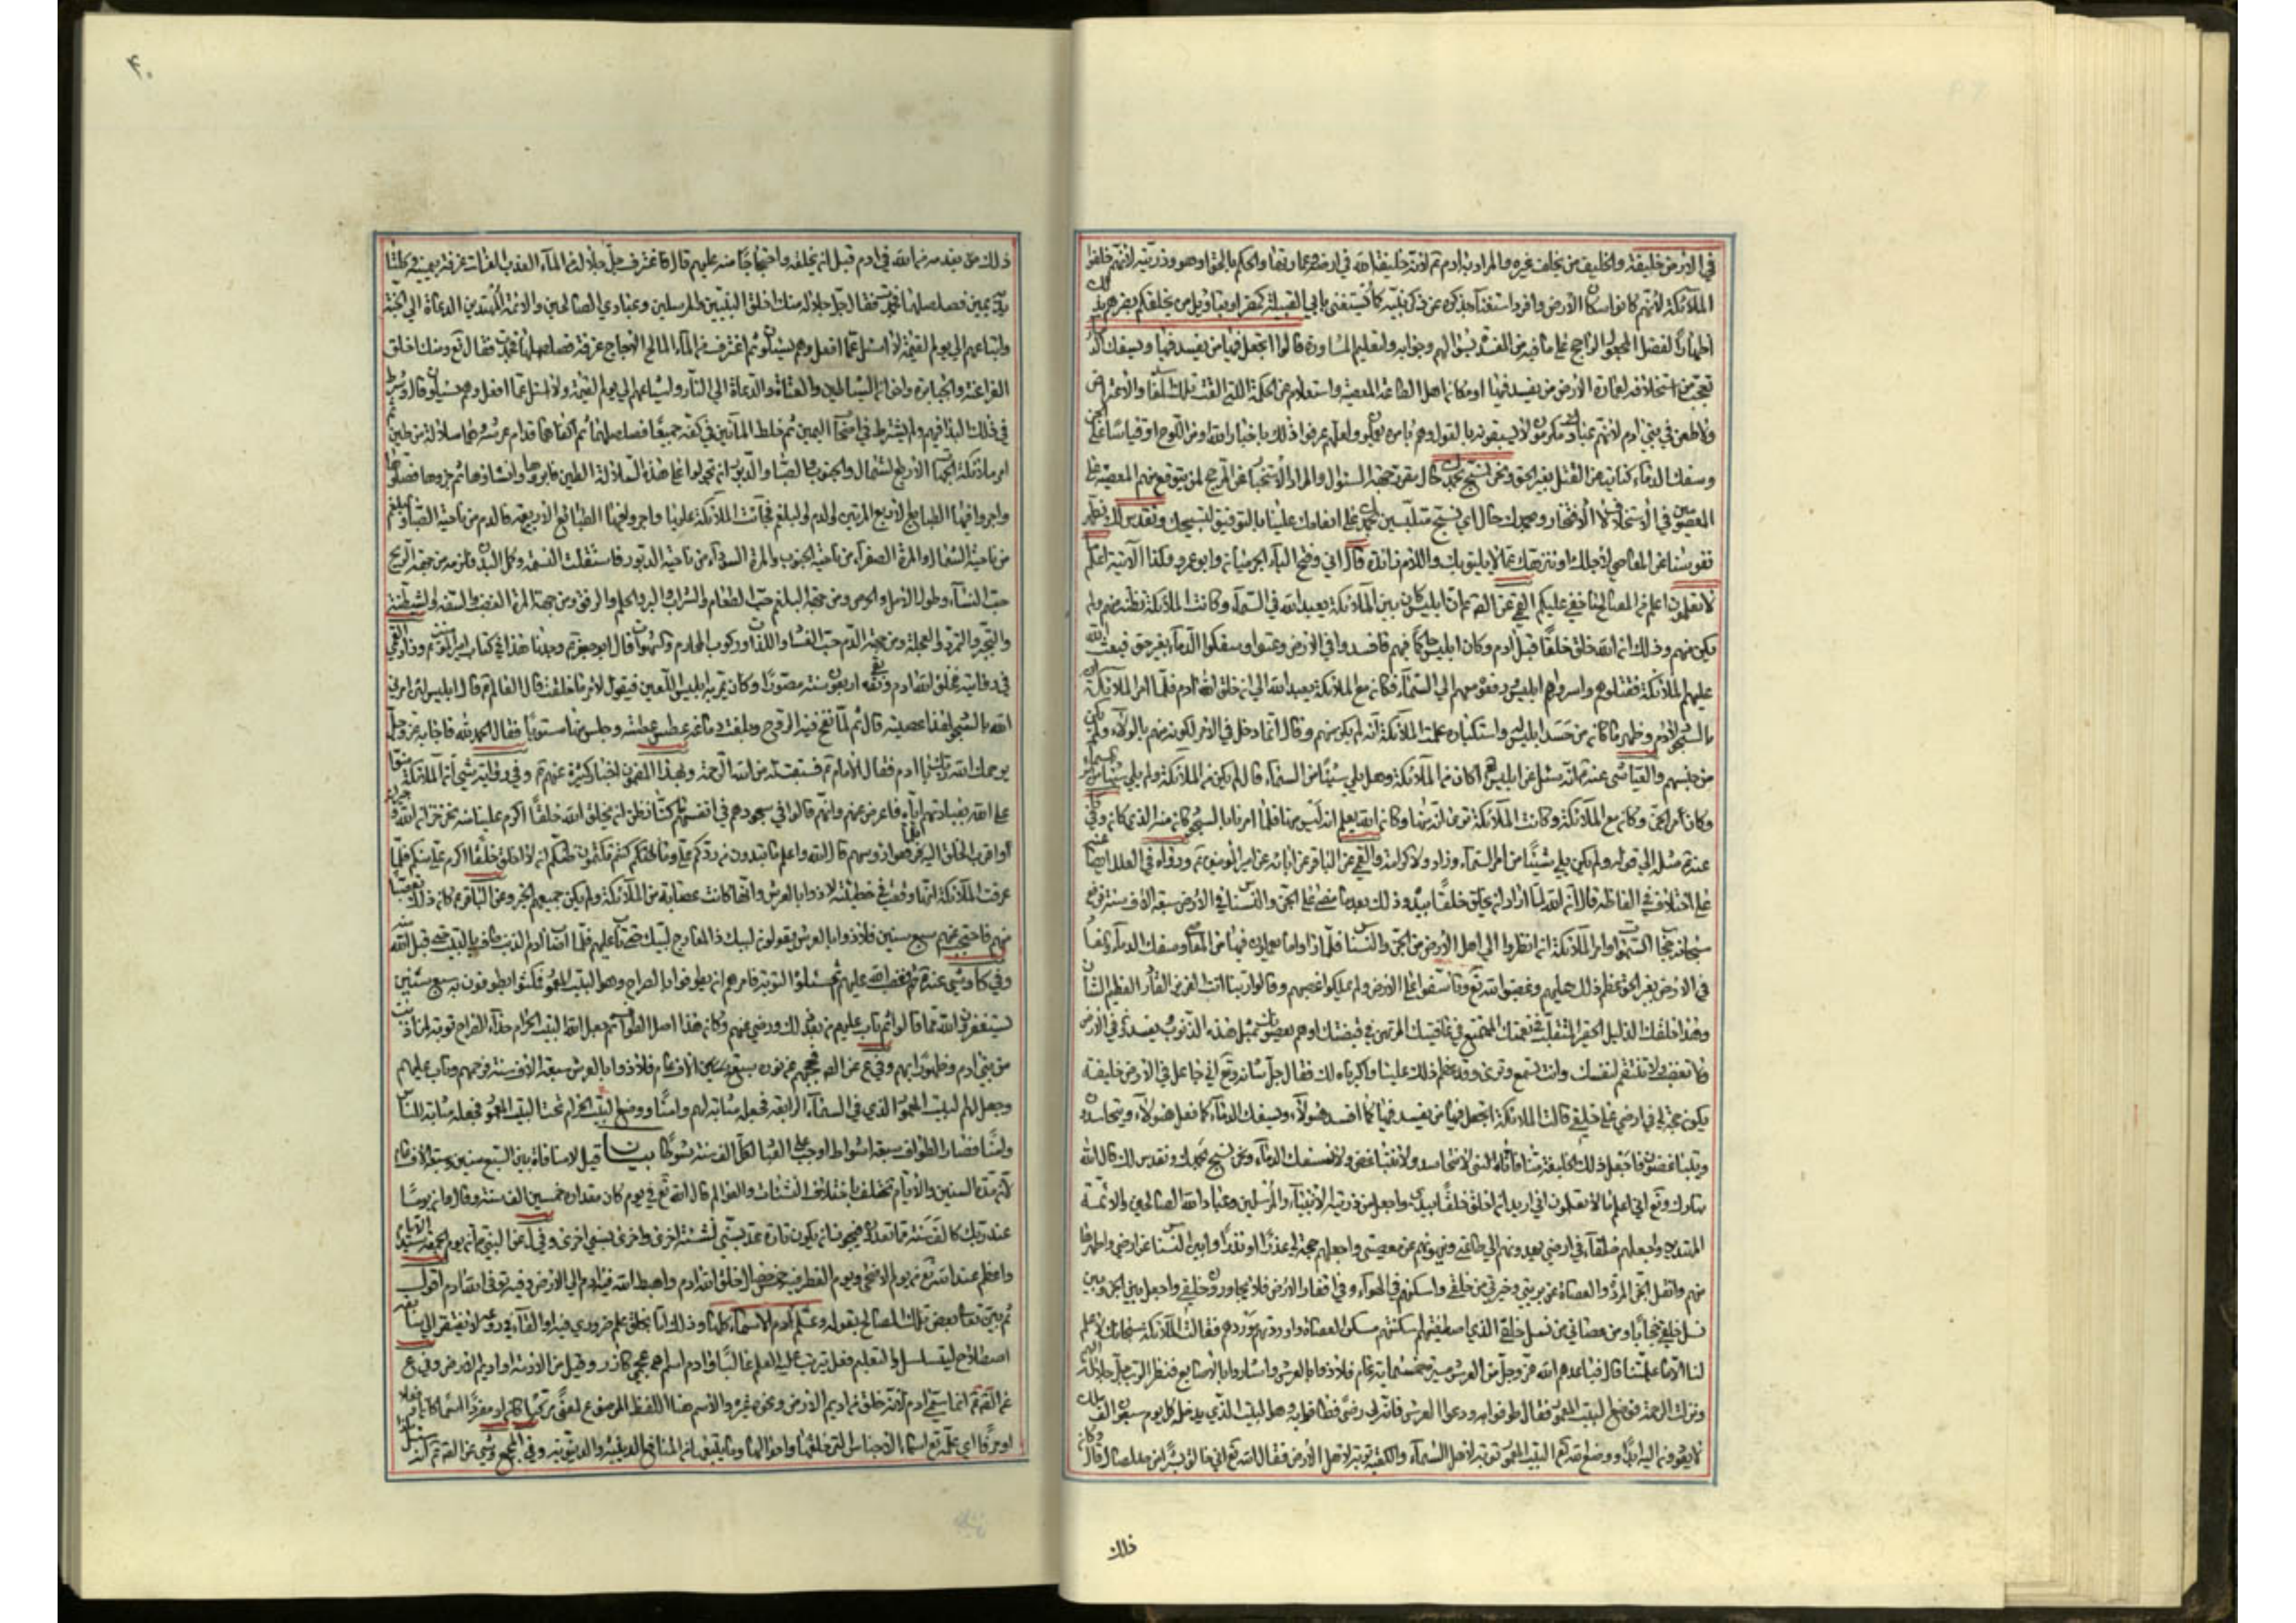 في الارض خليفة والخليفة من يخلف غيره والمراد به ادم ع لانه خليفة الله في ارضه وعمارتها والحكم بالحق او هو وذريته لانهم خلفوا
الملائكة لانهم كانوا سكان الارض وافرد استغناء بذكره عن ذكر بنيه كما يستغنى بابي القبيلة كمضر او بتاويل من يخلفكم
لفضل المجعول الراجح على ما فيه من المفسدة بسؤالهم وجوابه ولتعليم المشاورة قالوا اتجعل فيها من يفسد فيها ويسفك الدماء
تعجب من استخلافه لعمارة الارض من يفسد فيها او مكان اهل الطاعة المعصية واستعلام عن الحكمة التي الغت تلك
ولا طعن في بني ادم لانهم عباد مكرمون لا يسبقونه بالقول وهم بامره يعملون عرفوا ذلك باخبار الله او من اللوح او قياسا
وسفك الدماء كناية عن القتل بغير الحق ونحن نسبح بحمدك حال مقررة جهة السؤال والمراد
وبحمدك حال اي نسبح متلبسين بحمدك على انعامك علينا بالتوفيق لتسبيحك ونقدس لك نطهر
نفوسنا عن المعاصي لاجلك او ننزهك عما لا يليق بك واللام زائدة قال اني وفتح الياء الحرميان وابو عمرو وكذا الاتية اعلم
ما لا تعلمون اعلم من المصالح ما خفي عليكم القمي عن الصادق ع ان ابليس كان بين الملائكة يعبد الله في السماء وكانت الملائكة تظنه منهم ولم
يكن منهم وذلك ان الله خلق خلقا قبل ادم وكان ابليس حاكما فيهم فافسدوا في الارض وعتوا وسفكوا الدماء بغير حق فبعث الله
عليهم الملائكة فقتلوهم واسروا ابليس ورفعوه معهم الى السماء فكان مع الملائكة يعبد الله الى ان خلق الله ادم فلما امر الملائكة
بالسجود لادم وظهر ما كان من حسد ابليس واستكباره علمت الملائكة انه لم يكن منهم وقال انما دخل في الامر لكونه منهم بالولاء ولم يكن
من جنسهم والعياشي عنه ع انه سئل عن ابليس اكان من الملائكة وهل يلي شيئا من السماء قال لم يكن من الملائكة ولم يلي شيئا
وكان من الجن وكان مع الملائكة وكانت الملائكة ترى انه منها وكان الله يعلم انه ليس منها فلما امر بالسجود كان منه الذي كان وفي
ولم يكن يلي شيئا من امر السماء وزاد ولا كرامة والقمي عن الباقر عن ابائه عن امير المؤمنين ع ورواه في العلل ايضا
على اختلاف في الفاظه قال ان الله لما اراد ان يخلق خلقا بيده وذلك بعد ما مضى على الجن والنسناس في الارض سبعة الاف سنة
امر الملائكة ان انظروا الى اهل الارض من الجن والنسناس فلما راوا ما يعملون فيها من المعاصي وسفك الدماء
في الارض بغير الحق عظم ذلك عليهم وغضبوا لله تع وتاسفوا على الارض ولم يملكوا غضبهم وقالوا ربنا انت العزيز القادر العظيم الشان
وهذا خلقك الذليل الحقير المتقلب في نعمتك المتمتع في عافيتك المرتهن في قبضتك وهم يعصونك بمثل هذه الذنوب
ولا تغضب ولا تنتقم لنفسك وانت تسمع وترى وقد عظم ذلك علينا واكبرناه لك فقال جل شانه وتع اني جاعل في الارض خليفة
يكون حجة لي في ارضي على خلقي قالت الملائكة اتجعل فيها من يفسد فيها كما افسد هؤلاء ويسفك الدماء كما فعل هؤلاء ويتحاسدون
ويتباغضون فاجعل ذلك الخليفة منا فانا لا نتحاسد ولا نتباغض ولا نسفك الدماء ونحن نسبح بحمدك ونقدس لك قال الله
تبارك وتع اني اعلم ما لا تعلمون اني اريد ان اخلق خلقا بيدي واجعل من ذريته الانبياء والمرسلين وعباد الله الصالحين والائمة
المهتدين واجعلهم خلفاء في ارضي يهدونهم الى طاعتي وينهونهم عن معصيتي واجعلهم حجة لي عذرا او نذرا وابين النسناس عن ارضي واطهرها
منهم وانقل الجن المردة العصاة عن بريتي وخيرتي من خلقي واسكنهم في الهواء وفي اقطار الارض فلا يجاورون خلقي واجعل بين الجن وبين
نسل خلقي حجابا ومن عصاني من نسل خلقي الذين اصطفيتهم اسكنتهم مسكن العصاة واوردتهم موردهم فقالت الملائكة سبحانك لا علم
لنا الا ما علمتنا قال فباعدهم الله عز وجل من العرش مسيرة خمسمائة عام فلاذوا بالعرش واشاروا بالاصابع فنظر الرب جل جلاله
ونزلت الرحمة فوضع لهم البيت المعمور فقال طوفوا به ودعوا العرش فانه لي رضى فطافوا به وهو البيت الذي يدخل كل يوم سبعون الف ملك
لا يعودون اليه ابدا ووضع الله البيت المعمور توبة لاهل السماء والكعبة توبة لاهل الارض فقال الله تع اني خالق بشرا من صلصال قال وكان
ذلك
۴۰
ذلك من تقدمة من الله في ادم قبل ان يخلقه واحتجاجا منه عليهم قال فاغترف جل جلاله من الماء العذب الفرات غرفة بيمينه وكلتا
يديه يمين فصلصلها فجمدت فقال جل جلاله منك اخلق النبيين والمرسلين وعبادي الصالحين والائمة المهتدين الدعاة الى الجنة
واتباعهم الى يوم القيمة ولا اسئل عما افعل وهم يسئلون ثم اغترف من الماء المالح الاجاج غرفة فصلصلها فجمدت فقال تع ومنك اخلق
الفراعنة والجبابرة واخوان الشياطين والعتاة والدعاة الى النار واشياعهم الى يوم القيمة ولا اسئل عما افعل وهم يسئلون قال وشرط
في ذلك البداء فيهم ولم يشترط في اصحاب اليمين ثم خلط المائين في كفه جميعا فصلصلهما ثم اكفاهما قدام عرشه وهما سلالة من طين
امر ملائكة الجهات الاربع الشمال والجنوب والصبا والدبور ان يجولوا على هذه السلالة الطين فابروها وانشاوها ثم جزوها وفصلوها
واجروا فيها الطبايع الاربع المرتين والدم والبلغم فجالت الملائكة عليها واجروا فيها الطبائع الاربعة فالدم من ناحية الصبا والبلغم
من ناحية الشمال والمرة الصفراء من ناحية الجنوب والمرة السوداء من ناحية الدبور فاستقلت النسمة وكمل البدن فلزمه من جهة الريح
حب النساء وطول الامل والحرص ومن جهة البلغم حب الطعام والشراب والبر والحلم والرفق ومن جهة المرة الغضب والسفه والشيطنة
والتجبر والتمرد والعجلة ومن جهة الدم حب الفساد واللذات وركوب المحارم والشهوات قال ابو جعفر ع وجدنا هذا في كتاب امير المؤمنين
في رواية فخلق الله ادم وبقي اربعين سنة مصورا وكان يمر به ابليس اللعين فيقول لامر ما خلقت قال العالم ع قال ابليس لئن امرني
الله بالسجود لهذا عصيته قال ثم لما نفخ فيه الروح وبلغت دماغه عطس عطسة وجلس منها مستويا فقال الحمد لله فاجابه عز وجل
يرحمك الله ربك يا ادم فقال الامام ع فسبقت له من الله الرحمة وبهذا المضمون اخبار كثيرة عنهم ع وفي رواية ان الملائكة منوا
على الله بعبادتهم اياه فاعرض عنهم وانهم قالوا في سجودهم في انفسهم ما كنا نظن ان يخلق الله خلقا اكرم عليه منا نحن خزان الله وجيرانه
واقرب الخلق اليه فلما رفعوا رؤسهم قال الله واعلم ما تبدون من ردكم علي وما كنتم تكتمون ظنكم ان لا اخلق خلقا اكرم علي منكم فلما
عرفت الملائكة انها وقعت في خطيئة لاذوا بالعرش وانها كانت عصابة من الملائكة ولم يكن جميعهم الخبر وعن الباقر ع كان ذلك
منهم فاحتجب عنهم سبع سنين فلاذوا بالعرش يقولون لبيك ذا المعارج لبيك حتى تاب عليهم فلما اصاب ادم الذنب طاف بالبيت حتى قبل الله منه
وفي عنه ع فغضب الله عليهم ثم سئلوه التوبة فامرهم ان يطوفوا بالضراح وهو البيت المعمور فمكثوا يطوفون به سبع سنين
يستغفرون الله مما قالوا ثم تاب عليهم من بعد ذلك ورضي عنهم فكان هذا اصل الطواف ثم جعل الله البيت الحرام حذاء الضراح توبة لمن اذنب
من بني ادم وطهورا لهم وفي ع عن فحجبهم عن نوره سبعة الاف عام فلاذوا بالعرش سبعة الاف سنة فرحمهم وتاب عليهم
وجعل لهم البيت المعمور الذي في السماء الرابعة فجعله مثابة لهم وامنا ووضع البيت الحرام تحت البيت المعمور فجعله مثابة للناس
وامنا فصار الطواف سبعة اشواط اوجب على العباد لكل الف سنة شوطا بيان قيل لا منافاة بين السبع سنين وسبعة الاف عام
لان مدة السنين والايام تختلف باختلاف النشات والعوالم قال الله تع في يوم كان مقداره خمسين الف سنة وقال وان يوما
عند ربك كالف سنة مما تعدون فيجوز ان يكون تارة عد بسني نشئة اخرى واخرى بسني اخرى وفي عن النبي ص ان يوم الجمعة سيد الايام
واعظم عند الله تع من يوم الاضحى ويوم الفطر فيه خمس خصال خلق الله ادم واهبط الله فيه ادم الى الارض وفيه توفى الله ادم اقول
ثم بين تعالى بعض تلك المصالح بقوله وعلم ادم الاسماء كلها وذلك اما بخلق علم ضروري فيه او القاء في روعه ولا يفتقر الى سابقة
اصطلاح ليتسلسل والتعليم فعل يترتب عليه العلم غالبا وادم اسم اعجمي كازر وقيل من الادمة او اديم الارض وفي ع
عن الصادق ع انما سمي ادم لانه خلق من اديم الارض ونحوه غيره والاسم هنا اللفظ الموضوع لمعنى مركبا كان او مفردا اسما كان او فعلا
او حرفا اي علمه تع اسماء الاجناس التي خلقها واحوالها وما يتعلق بها من المنافع الدينية والدنيوية وفي المجمع عن الصادق ع